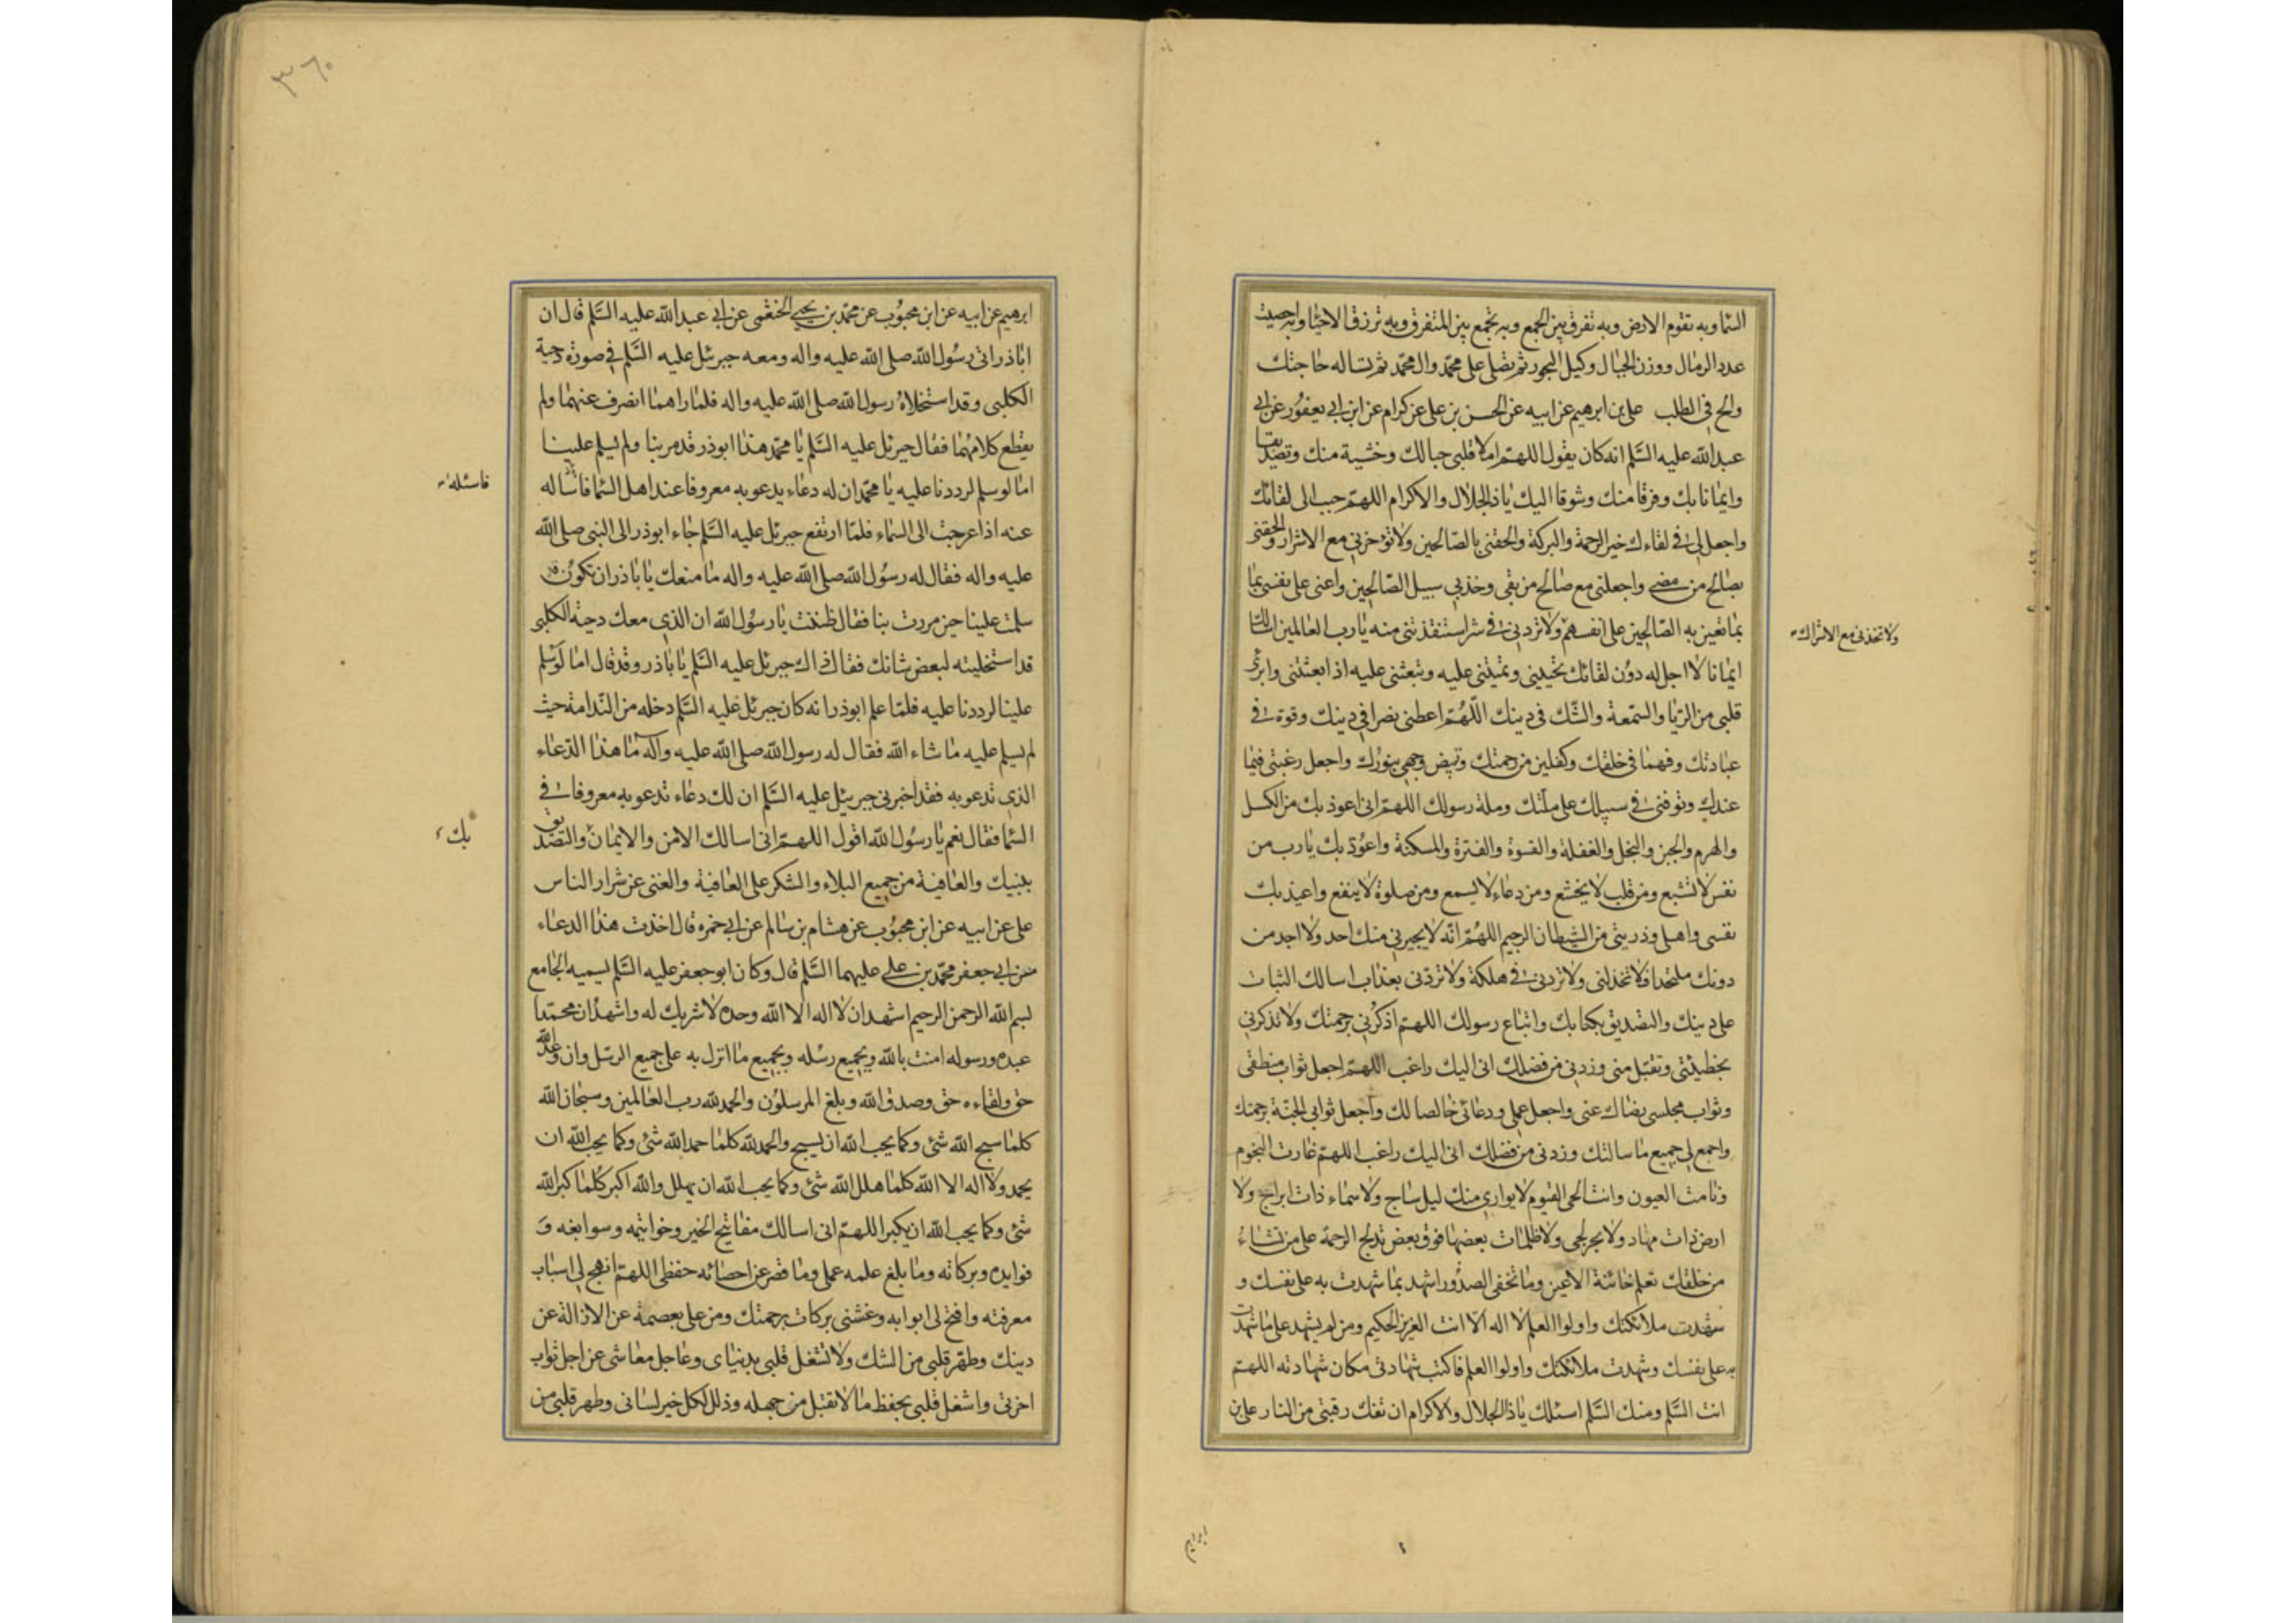 السما وبه تقوم الارض وبه تفرق بين الجمع وبه تجمع بين المتفرق وبه ترزق الاحيا وبه احصيت
عدد الرمال ووزن الجبال وكيل البحور ثم تصلى على محمد وال محمد ثم تساله حاجتك
والح فى الطلب على بن ابرهيم عن ابيه عن الحسن بن على عن كرام عن ابن ابى يعفور عن ابى
عبد الله عليه السلم انه كان يقول اللهم املا قلبى حبا لك وخشية منك وتصديقا
وايمانا بك وفرقا منك وشوقا اليك يا ذا الجلال والاكرام اللهم حبب الى لقائك
واجعل لى فى لقاءك خير الرحمة والبركة والحقنى بالصالحين ولا تؤخرنى مع الاشرار والحقنى
بصالح من مضى واجعلنى مع صالح من بقى وخذ بى سبيل الصالحين واعنى على نفسى بما
بما تعين به الصالحين على انفسهم ولا تردنى فى شر استنقذتنى منه يا رب العالمين اسالك
ولا تخذنى مع الاشراك
ايمانا لا اجل له دون لقائك تحيينى وتميتنى عليه وتبعثنى عليه اذا بعثتنى وابرئ
قلبى من الريا والسمعة والشك فى دينك اللهم اعطنى نصرا فى دينك وقوة فى
عبادتك وفهما فى خلقك وكفلين من رحمتك وتبيض وجهى بنورك واجعل رغبتى فيما
عندك وتوفنى فى سبيلك على ملتك وملة رسولك اللهم انى اعوذ بك من الكسل
والهرم والجبن والبخل والغفلة والقسوة والفترة والمسكنة واعوذ بك يا رب من
نفس لا تشبع ومن قلب لا يخشع ومن دعاء لا يسمع ومن صلوة لا ينفع واعيذ بك
نفسى واهلى وذريتى من الشيطان الرجيم اللهم انه لا يجيرنى منك احد ولا اجد من
دونك ملتحدا فلا تخذلنى ولا تردنى فى هلكة ولا تردنى بعذاب اسالك الثبات
على دينك والتصديق بكتابك واتباع رسولك اللهم اذكرنى برحمتك ولا تذكرنى
بخطيئتى وتقبل منى وزدنى من فضلك انى اليك راغب اللهم اجعل ثواب منطقى
وثواب مجلسى رضاك عنى واجعل عملى ودعائى خالصا لك واجعل ثوابى الجنة برحمتك
واجمع لى جميع ما سالتك وزدنى من فضلك انى اليك راغب اللهم غارت النجوم
ونامت العيون وانت الحى القيوم لا يوارى منك ليل ساج ولا سماء ذات ابراج ولا
ارض ذات مهاد ولا بحر لجى ولا ظلمات بعضها فوق بعض تدلج الرحمة على من تشاء
من خلقك تعلم خائنة الاعين وما تخفى الصدور اشهد بما شهدت به على نفسك و
شهدت ملائكتك واولوا العلم لا اله الا انت العزيز الحكيم ومن لم يشهد على ما شهدت
به على نفسك وشهدت ملائكتك واولوا العلم فاكتب شهادتى مكان شهادته اللهم
انت السلم ومنك السلم اسئلك يا ذا الجلال والاكرام ان تفك رقبتى من النار على بن
ابراهيم
٣٦٠
ابرهيم عن ابيه عن ابن محبوب عن محمد بن يحيى الخثعمى عن ابى عبد الله عليه السلم قال ان
اباذر اتى رسول الله صلى الله عليه واله ومعه جبرئل عليه السلم فى صورة دحية
الكلبى وقد استخلاه رسول الله صلى الله عليه واله فلما راهما انصرف عنهما ولم
يقطع كلامهما فقال جبرئل عليه السلم يا محمد هذا ابوذر قد مر بنا ولم يسلم علينا
اما لو سلم لرددنا عليه يا محمد ان له دعاء يدعو به معروفا عند اهل السما فاساله
فاسئله
عنه اذا عرجت الى السماء فلما ارتفع جبرئل عليه السلم جاء ابوذر الى النبى صلى الله
عليه واله فقال له رسول الله صلى الله عليه واله ما منعك يا باذر ان تكون
سلمت علينا حين مررت بنا فقال ظننت يا رسول الله ان الذى معك دحية الكلبى
قد استخليته لبعض شانك فقال ذاك جبرئل عليه السلم يا باذر وقد قال اما لو سلم
علينا لرددنا عليه فلما علم ابوذر انه كان جبرئل عليه السلم دخله من الندامة حيث
لم يسلم عليه ما شاء الله فقال له رسول الله صلى الله عليه واله ما هذا الدعاء
الذى تدعو به فقد اخبرنى جبريئل عليه السلم ان لك دعاء تدعو به معروفا فى
السما فقال نعم يا رسول الله اقول اللهم انى اسالك الامن والايمان والتصديق
بك
بنبيك والعافية من جميع البلاء والشكر على العافية والغنى عن شرار الناس
على عن ابيه عن ابن محبوب عن هشام بن سالم عن ابى حمزه قال اخذت هذا الدعاء
عن ابى جعفر محمد بن على عليهما السلم قال وكان ابو جعفر عليه السلم يسميه الجامع
بسم الله الرحمن الرحيم اشهد ان لا اله الا الله وحده لا شريك له واشهد ان محمدا
عبده ورسوله امنت بالله وبجميع رسله وبجميع ما انزل به على جميع الرسل وان وعد الله
حق ولقاءه حق وصدق الله وبلغ المرسلون والحمد لله رب العالمين وسبحان الله
كلما سبح الله شئ وكما يحب الله ان يسبح والحمد لله كلما حمد الله شئ وكما يحب الله ان
يحمد ولا اله الا الله كلما هلل الله شئ وكما يحب الله ان يهلل والله اكبر كلما كبر الله
شئ وكما يحب الله ان يكبر اللهم انى اسالك مفاتيح الخير وخواتيمه وسوابغه و
فوايده وبركاته وما بلغ علمه عملى وما قصر عن احصائه حفظى اللهم انهج لى اسباب
معرفته وافتح لى ابوابه وغشنى بركات رحمتك ومن على بعصمة عن الازالة عن
دينك وطهر قلبى من الشك ولا تشغل قلبى بدنياى وعاجل معاشى عن اجل ثواب
اخرتى واشغل قلبى بحفظ ما لا تقبل من جهله وذلل لكل خير لسانى وطهر قلبى من